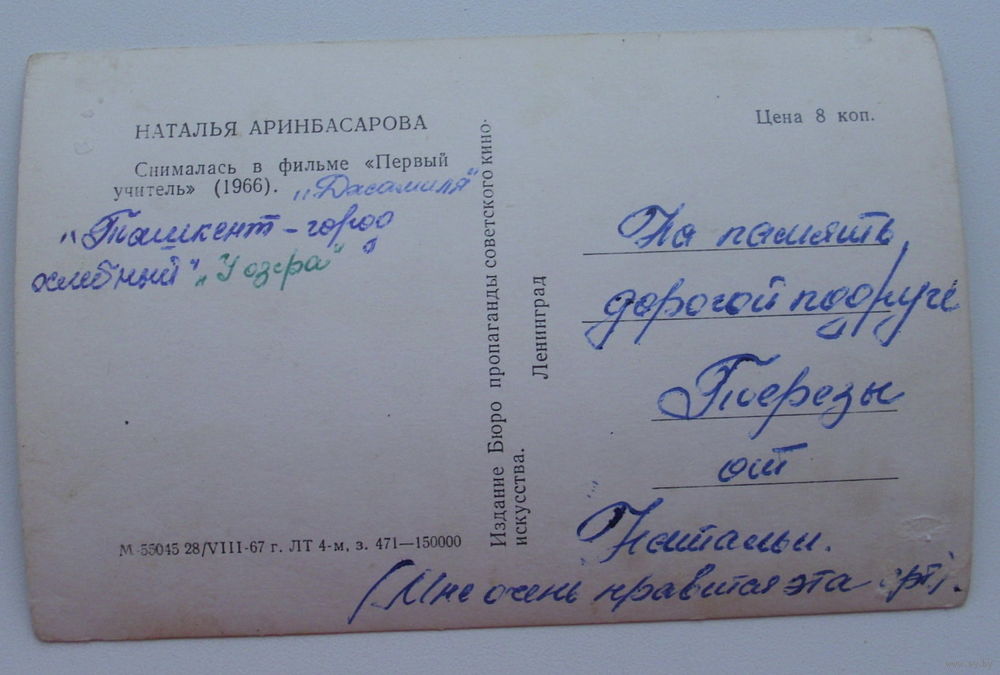 НАТАЛЬЯ АРИНБАСАРОВА
Снималась в фильме «Первый
учитель» (1966). „Джамиля"
„Ташкент - город
хлебный" „У озера"
М-55045 28/VIII-67 г. ЛТ 4-м, з. 471—150000
Издание Бюро пропаганды советского кино-
искусства.
Ленинград
Цена 8 коп.
На память
дорогой подруге
Терезы
от
Натальи.
(Мне очень нравится эта арт).
www.ay.by